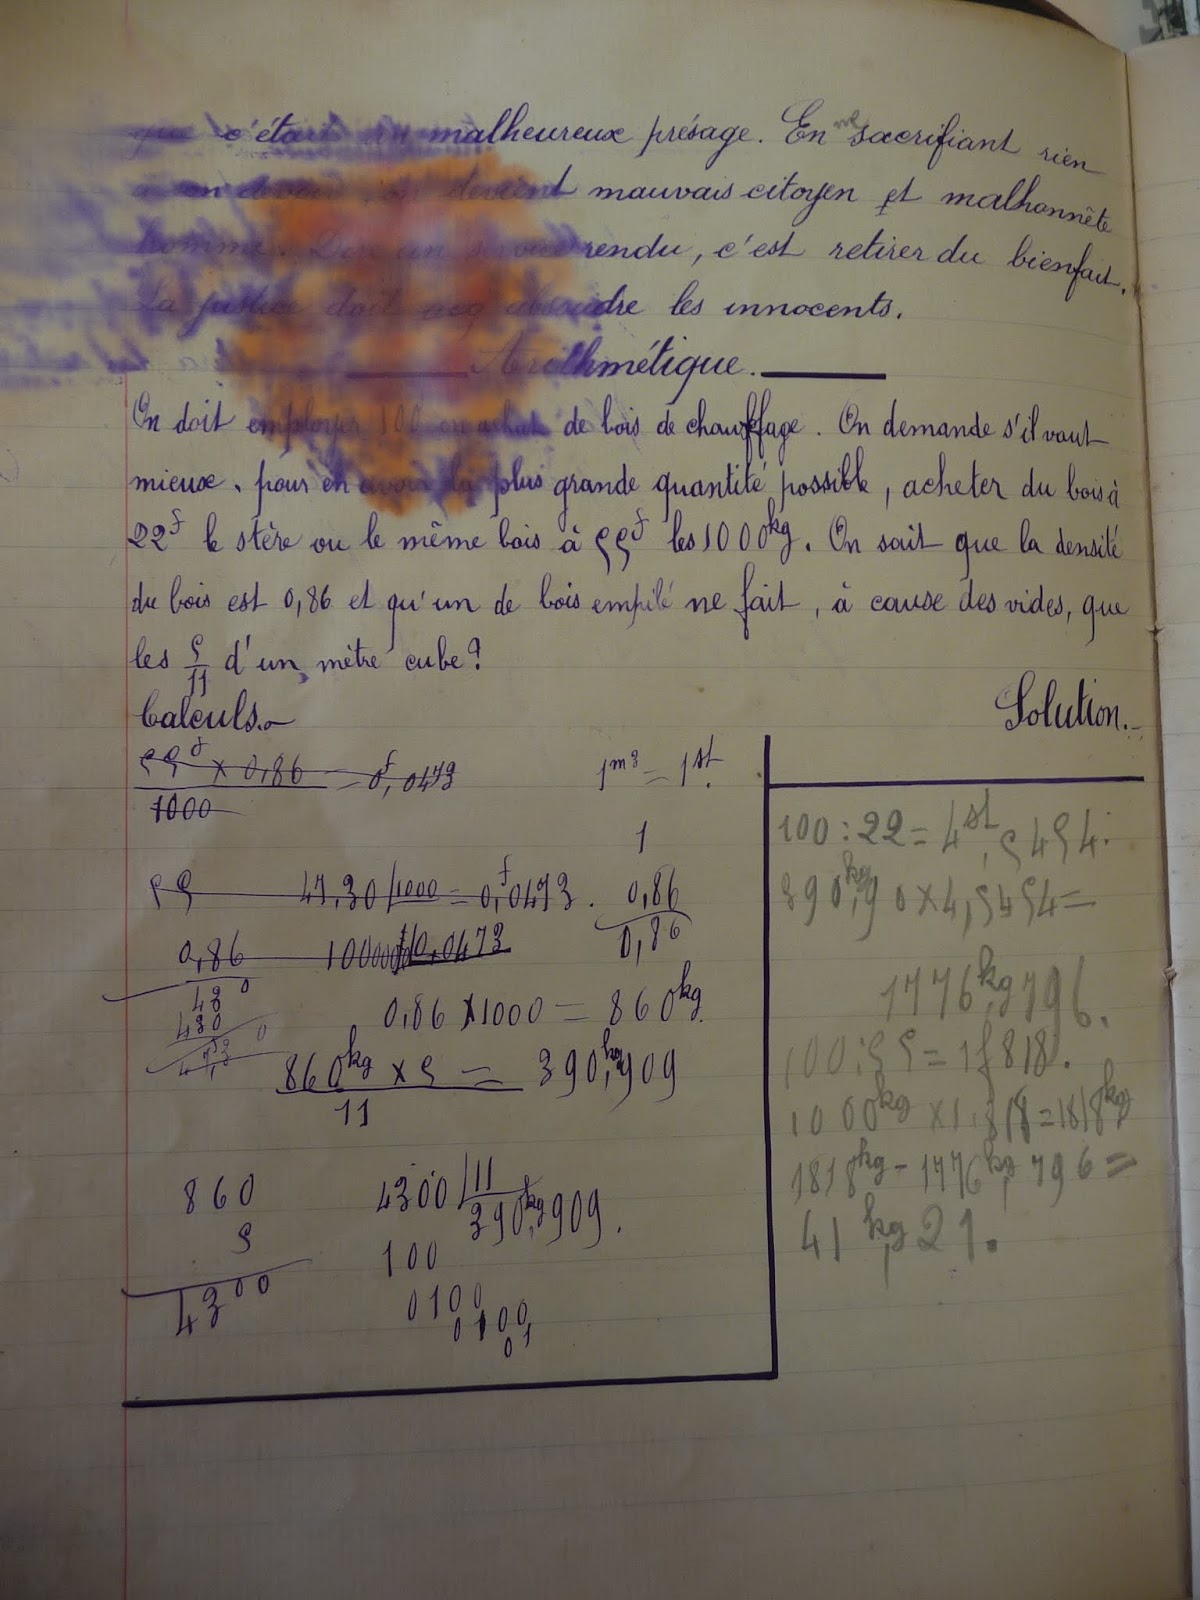 que c'était un malheureux présage. En ne sacrifiant rien
on devient mauvais citoyen et malhonnête
homme. un service rendu, c'est retirer du bienfait.
La justice doit absoudre les innocents.
Arithmétique.
On doit employer 100 en achat de bois de chauffage. On demande s'il vaut
mieux, pour en avoir la plus grande quantité possible, acheter du bois à
22f le stère ou le même bois à 55f les 1000kg. On sait que la densité
du bois est 0,86 et qu'un de bois empilé ne fait, à cause des vides, que
les 5/11 d'un mètre cube?
Calculs. Solution.
55f × 0,86 / 1000 = 0f,0473 1m3 = 1st.
1
55 47,30 / 1000 = 0f,0473. 0,86
0,86 0,0473 0,86
430
0,86 × 1000 = 860kg.
860kg × 5 / 11 = 390kg,909
860 4300 | 11
5 390kg,909.
4300 100
0100
0100
01
100 : 22 = 4st,5454.
390kg,90 × 4,5454 =
1776kg,796.
100 : 55 = 1f818.
1000kg × 1,818 = 1818kg
1818kg - 1776kg,796 =
41kg,21.